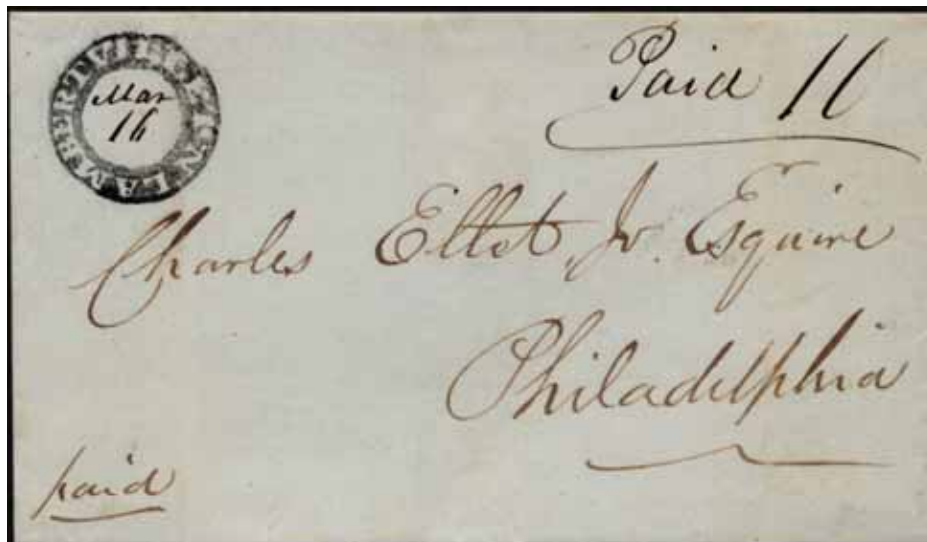 Mar
16
Paid 11
Charles Ellet, Jr. Esquire
Philadelphia
paid